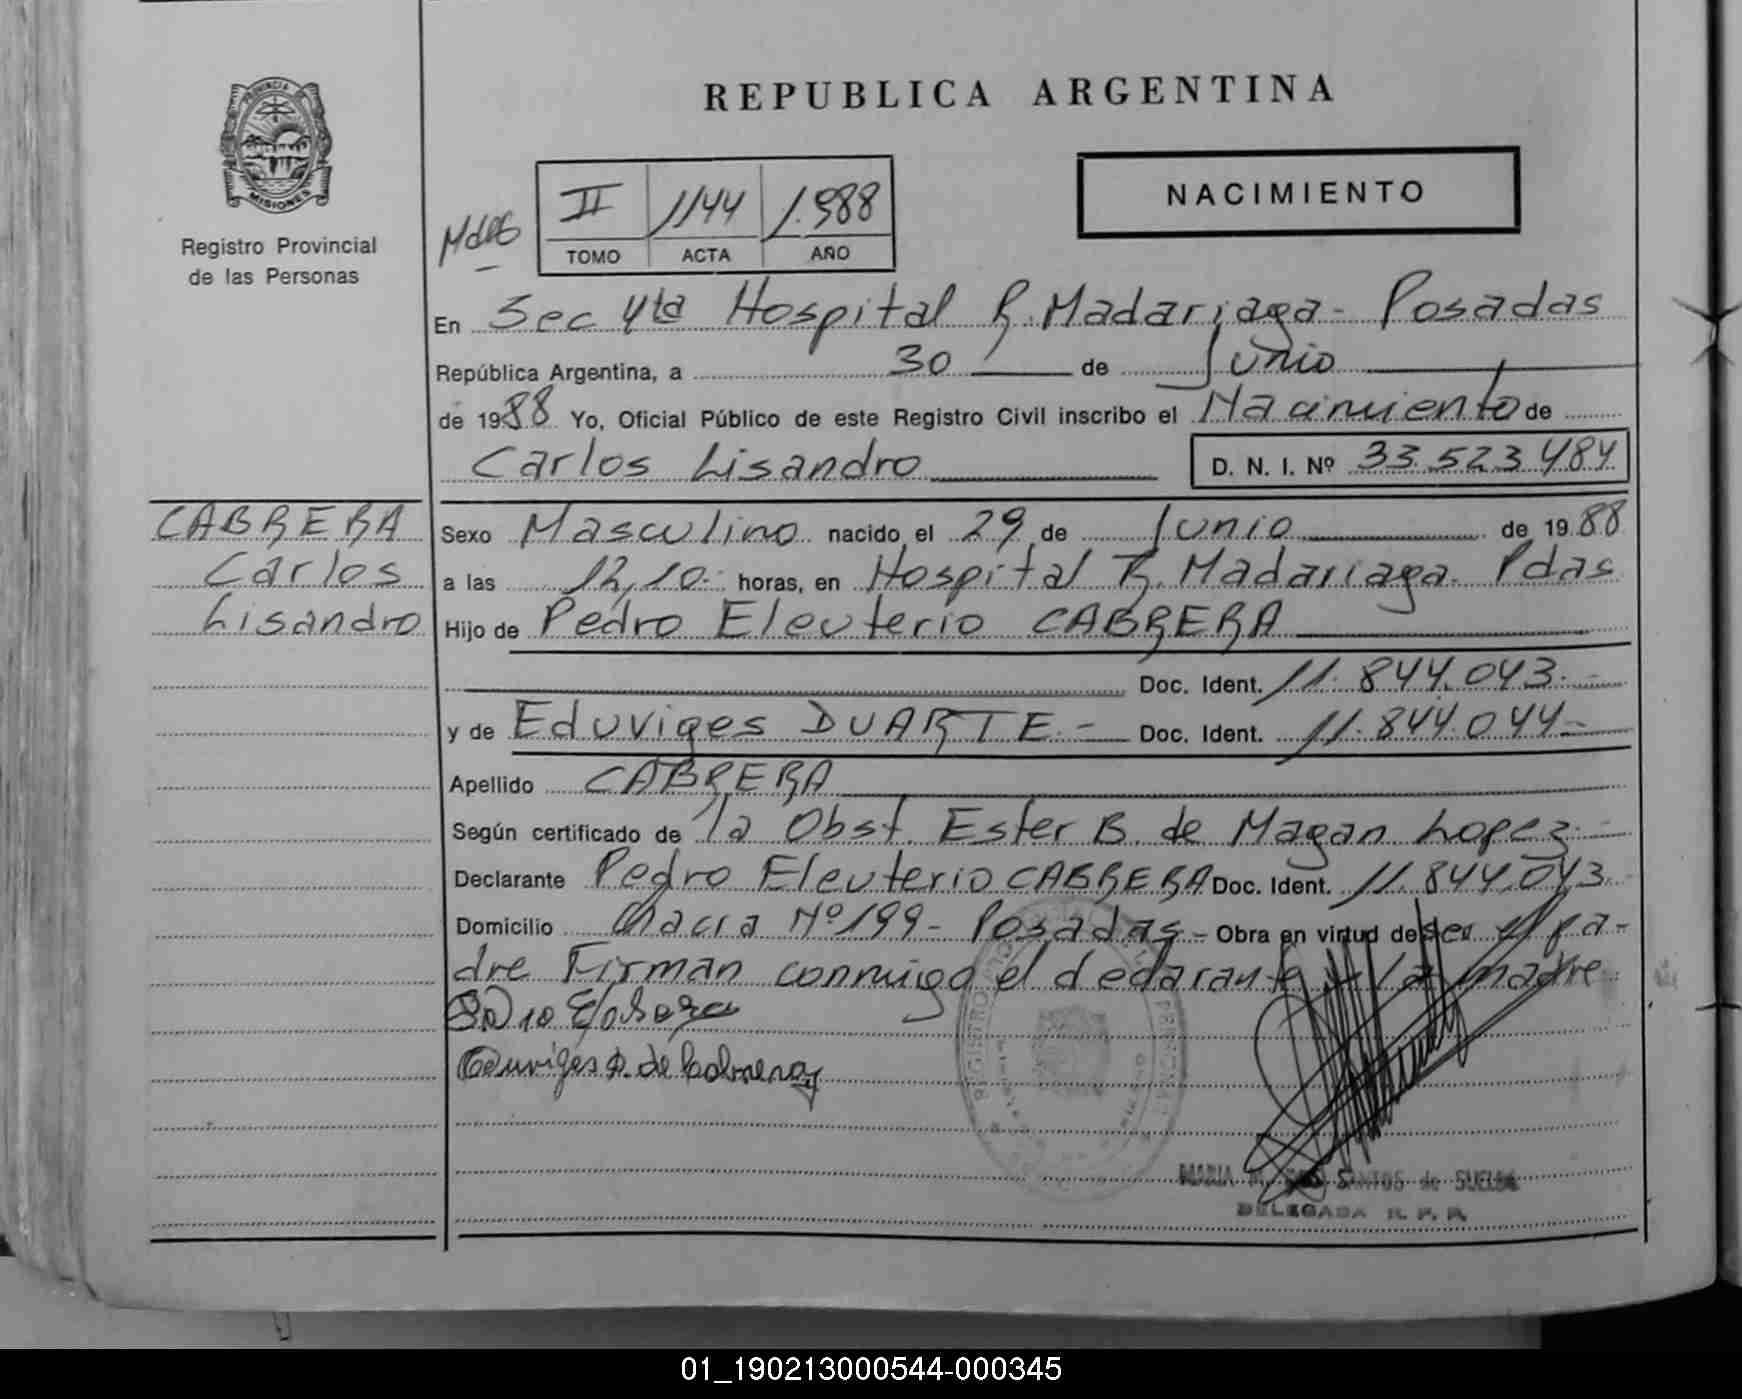 REPUBLICA ARGENTINA
PROVINCIA
MISIONES
Registro Provincial
de las Personas
II 1144 1.988
TOMO ACTA AÑO
NACIMIENTO
En Sec 4ta Hospital R. Madariaga - Posadas
República Argentina, a 30 de Junio
de 1988 Yo, Oficial Público de este Registro Civil inscribo el Nacimiento de
Carlos Lisandro D. N. I. Nº 33.523.484
CABRERA
Carlos
Lisandro
Sexo Masculino nacido el 29 de Junio de 1988
a las 12,10.- horas, en Hospital R. Madariaga. Pdas
Hijo de Pedro Eleuterio CABRERA
Doc. Ident. 11.844.043.-
y de Eduviges DUARTE.- Doc. Ident. 11.844.044-
Apellido CABRERA
Según certificado de la Obst. Ester B. de Magan Lopez.-
Declarante Pedro Eleuterio CABRERA Doc. Ident. 11.844.043.
Domicilio Chacra Nº 199- Posadas- Obra en virtud de ser el pa-
dre Firman conmigo el declarante y la madre
MARIA M. SANTOS de
DELEGADA R. P. P.
01_190213000544-000345